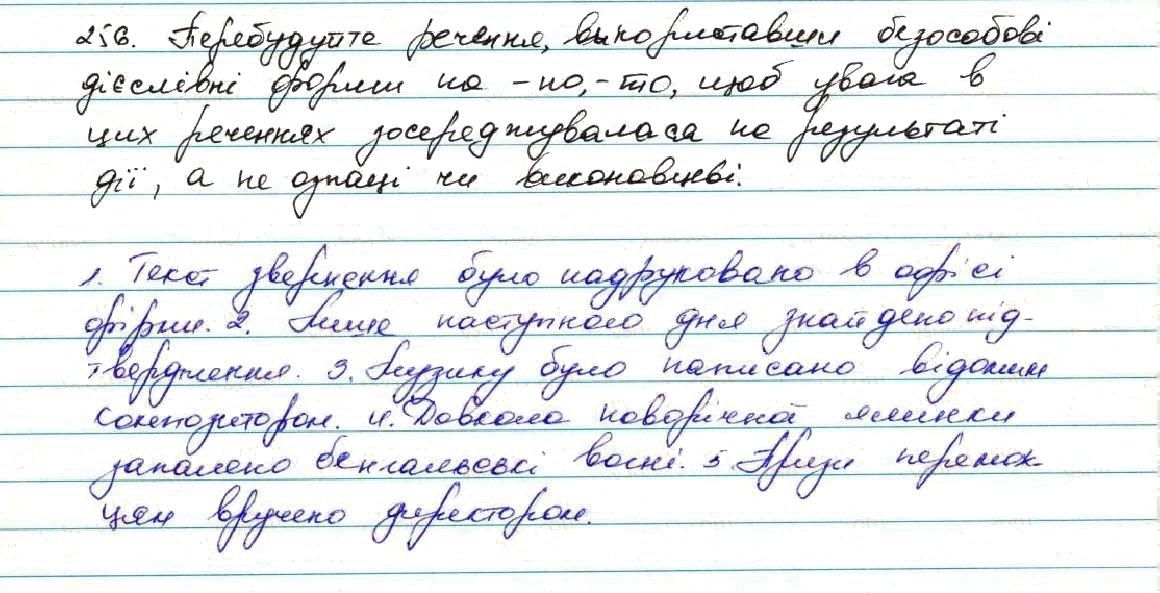 256. Перебудуйте речення, використавши безособові
дієслівні форми на -но, -то, щоб увага в
цих реченнях зосереджувалася на результаті
дії, а не ознаці чи виконавцеві.
1. Текст звернення було надруковано в офісі
фірми. 2. Лише наступного дня знайдено під-
твердження. 3. Музику було написано відомим
композитором. 4. Довкола новорічної ялинки
запалено бенгальські вогні. 5. Призи перемож-
цям вручено директором.